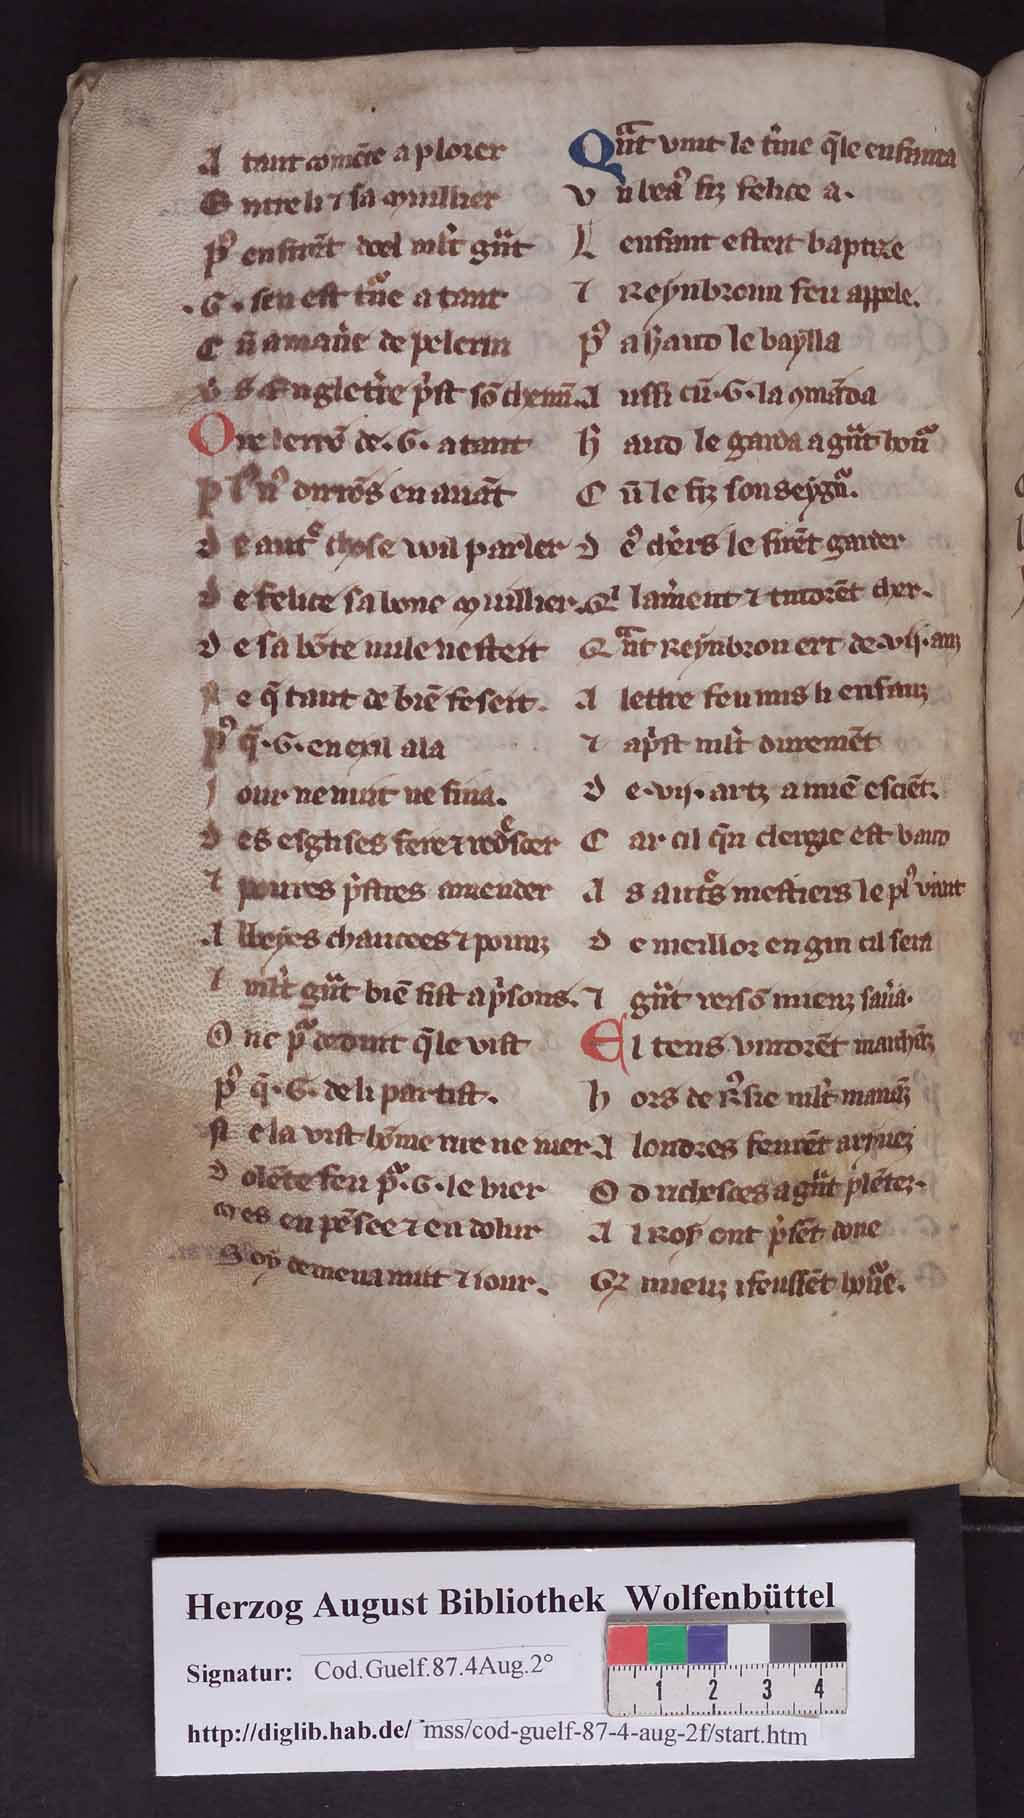 A tant comēce a plorer
E ntre li ⁊ sa muillier
P᷒ enfirēt doel mlt̉ gᵃ̄t
.G. seu est tn̄e a tant
C ū a man̉e de pelerin
V s Engletr̉e p̉st sō chemī.
Ore lerrō de .G. a tant
P l᷒ n᷒ dirrōs en auāt
D e autͤ chose uoil parler
D e felice sa bone muillier.
D e sa bōte nule nesteit
K e q̄ tant de biē feseit.
P᷒ q̄ .G. en exil ala
J our ne nuit ne fina.
D es esglises fere ⁊ redͬscer
⁊ poures p̉stres amender
A bbeyes chaucees ⁊ pounz
⁊ mlt̉ gᵃ̄t biē fist a p̉sons.
O nc pᵃ deduit q̄ le vist
P᷒ q̄ .G. de li partist.
N e la vist hōme rire ne iuer
D olēte feu pᵃ .G. le bier
M es en pēsee ⁊ en dolur
S oy demena nuit ⁊ iour.
Qᵃnt vint le t̉me q̄ le enfanta
V n beaᷣ fiz felice a.
L enfant esteit baptize
⁊ Reynbronn feu appele.
P᷒ a haud le baylla
A ussi cū .G. la cōmāda
H aud le garda a gᵃ̄t honᷣ
C ū le fiz son seygnᷣ.
D e᷒ ch̉ers le firēt garder
Qͥ lam̉ent ⁊ tindrēt cher.
Qᵃnt Reynbron ert de .vij. anz
A lettre feu mis li enfanz
⁊ ap̉st mlt̉ duremēt
D e .vij. artz a miē esciēt.
C ar cil q̄n clergie est baud
A s autͤs mestiers le pl᷒ uaut
D e meillor engin cil sera
⁊ gᵃ̄t resō mienz saủa.
El tens vindrēt marchāz
H ors de R᷒sie mlt̉ manāz
A londres feurēt ariuez
O d richesces a gᵃ̄t plētez.
A l Roy ont p̉sēt done
Qͤ mieuz i feussēt honᷣe.
Herzog August Bibliothek Wolfenbüttel
Signatur: Cod.Guelf.87.4Aug.2°
1 2 3 4
http://diglib.hab.de/ mss/cod-guelf-87-4-aug-2f/start.htm